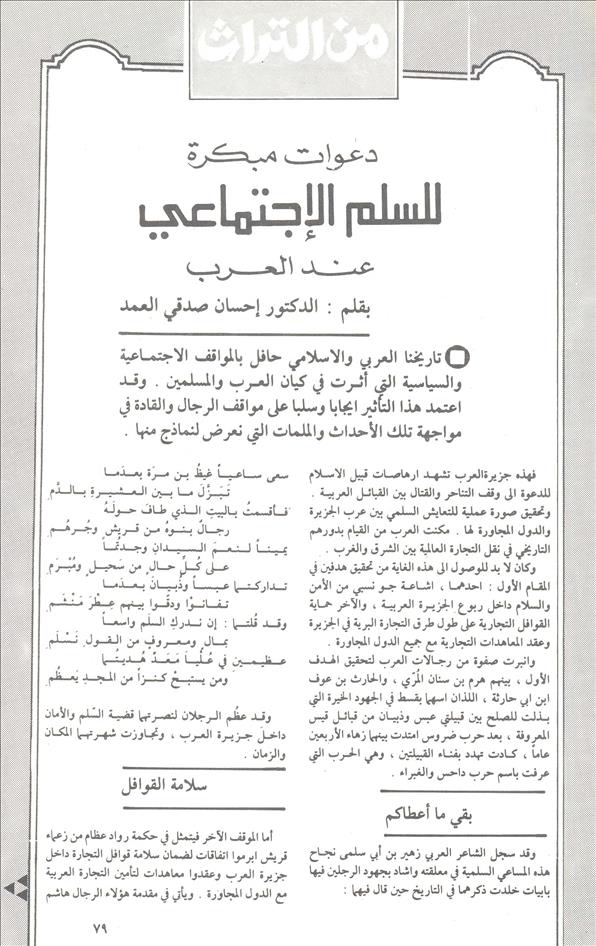 من التراث
دعوات مبكرة
للسلم الإجتماعي
عند العرب
بقلم : الدكتور إحسان صدقي العمد
تاريخنا العربي والاسلامي حافل بالمواقف الاجتماعية
والسياسية التي أثرت في كيان العرب والمسلمين . وقد
اعتمد هذا التأثير ايجابا وسلبا على مواقف الرجال والقادة في
مواجهة تلك الأحداث والملمات التي نعرض لنماذج منها .
فهذه جزيرة العرب تشهد ارهاصات قبيل الاسلام
للدعوة الى وقف التناحر والقتال بين القبائل العربية .
وتحقيق صورة عملية للتعايش السلمي بين عرب الجزيرة
والدول المجاورة لها . مكنت العرب من القيام بدورهم
التاريخي في نقل التجارة العالمية بين الشرق والغرب .
وكان لا بد للوصول الى هذه الغاية من تحقيق هدفين في
المقام الأول : احدهما ، اشاعة جو نسبي من الأمن
والسلام داخل ربوع الجزيرة العربية ، والآخر حماية
القوافل التجارية على طول طرق التجارة البرية في الجزيرة
وعقد المعاهدات التجارية مع جميع الدول المجاورة .
وانبرت صفوة من رجالات العرب لتحقيق الهدف
الأول ، بينهم هرم بن سنان المُرّي ، والحارث بن عوف
ابن ابي حارثة ، اللذان اسهما بقسط في الجهود الخيرة التي
بذلت للصلح بين قبيلتي عبس وذبيان من قبائل قيس
المعروفة ، بعد حرب ضروس امتدت بينهما زهاء الأربعين
عاماً ، كادت تهدد بفناء القبيلتين ، وهي الحرب التي
عرفت باسم حرب داحس والغبراء .
بقي ما أعطاكم
وقد سجل الشاعر العربي زهير بن أبي سلمى نجاح
هذه المساعي السلمية في معلقته واشاد بجهود الرجلين فيها
بابيات خلدت ذكرهما في التاريخ حين قال فيهما :
سعى ساعياً غيظُ بن مرَة بعدَما
تَبَزّلَ ما بين العشيرةِ بالدَّم
فأقسمتُ بالبيتِ الذي طافَ حولَهُ
رجالٌ بنوهُ من قريشٍ وجُرهُم
يميناً لنعمَ السيدانِ وجدتُما
على كُلِّ حالٍ من سَحيلٍ ومُبْرَم
تداركتما عبساً وذُبيانَ بعدَما
تفانَوْا ودقّوا بينهم عِطْرَ مَنْشَم
وقد قُلتما : إن ندركِ السلم واسعاً
بمالٍ ومعروفٍ من القولِ نَسْلَم
عظيمين في عُلْيا مَعَدٍّ هُديتُما
ومن يستبحْ كنزاً من المجدِ يَعظُم
وقد عظَّم الرجلان لنصرتهما قضية السّلم والأمان
داخل جزيرة العرب ، وتجاوزت شهرتهما المكان
والزمان .
سلامة القوافل
أما الموقف الآخر فيتمثل في حكمة رواد عظام من زعماء
قريش ابرموا اتفاقات لضمان سلامة قوافل التجارة داخل
جزيرة العرب وعقدوا معاهدات لتأمين التجارة العربية
مع الدول المجاورة . ويأتي في مقدمة هؤلاء الرجال هاشم
٧٩